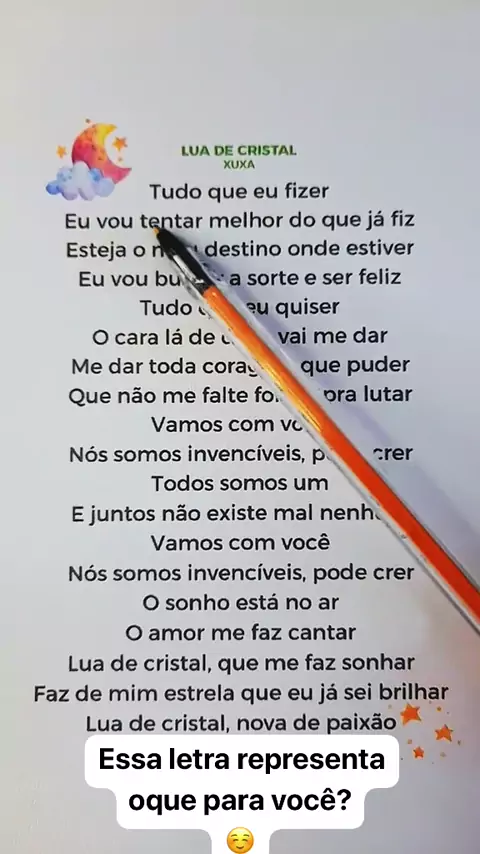 LUA DE CRISTAL
XUXA
Tudo que eu fizer
Eu vou tentar melhor do que já fiz
Esteja o destino onde estiver
Eu vou a sorte e ser feliz
Tudo eu quiser
O cara lá de vai me dar
Me dar toda que puder
Que não me falte pra lutar
Vamos com
Nós somos invencíveis, crer
Todos somos um
E juntos não existe mal
Vamos com você
Nós somos invencíveis, pode crer
O sonho está no ar
O amor me faz cantar
Lua de cristal, que me faz sonhar
Faz de mim estrela que eu já sei brilhar
Lua de cristal, nova de paixão
Essa letra representa
oque para você?
☺️